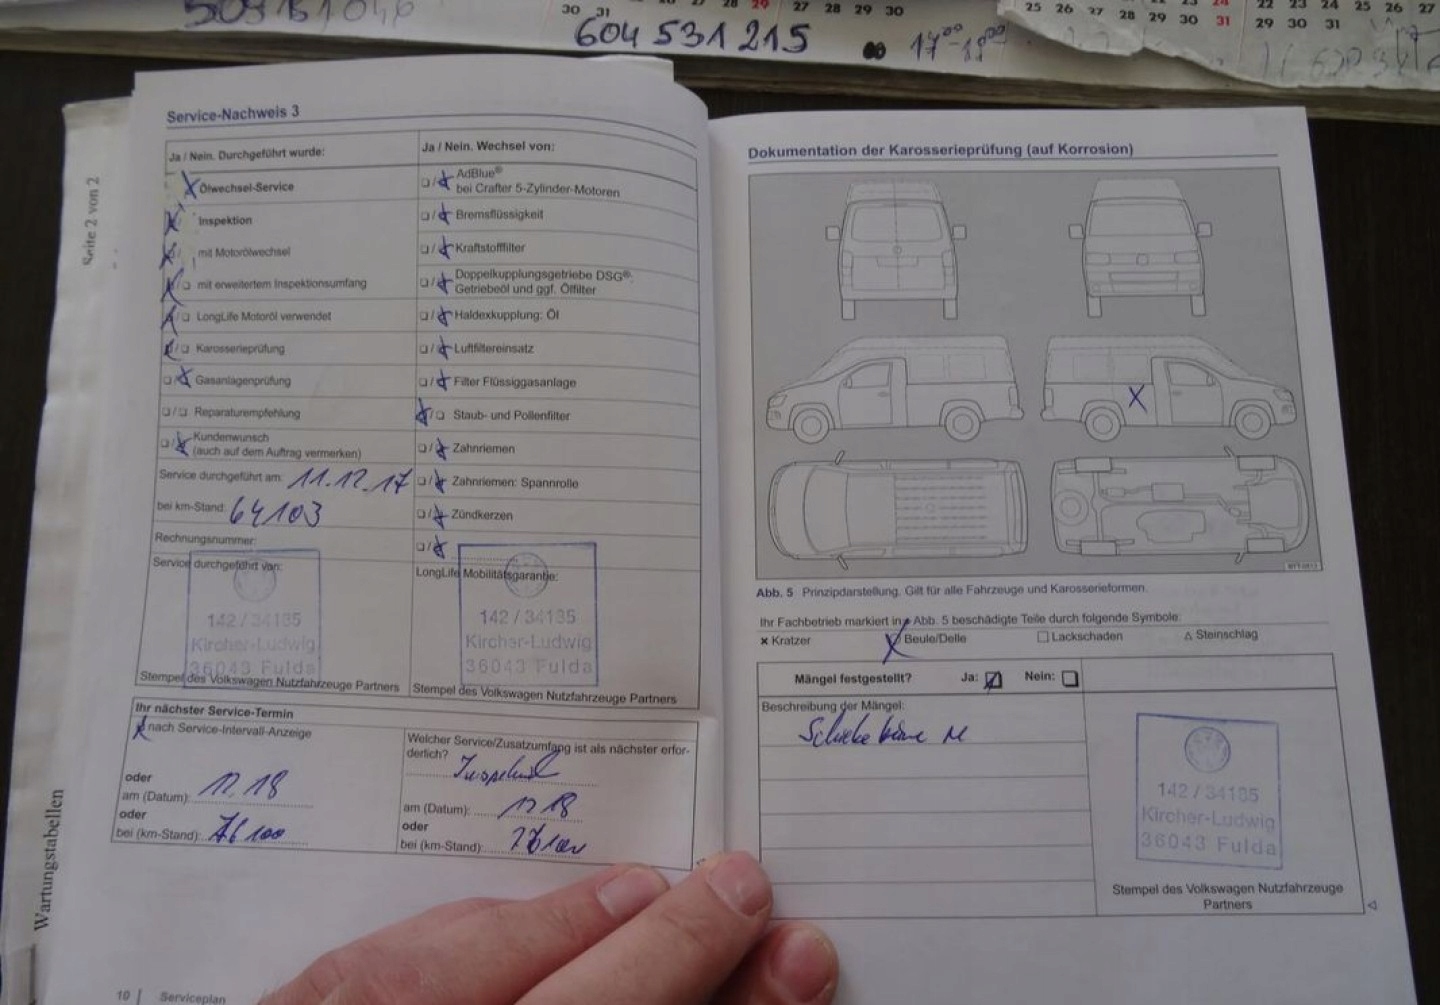 30 31
27 28 29 30
25 26 27 28 29 30 31
22 23 24 25 26 27
29 30 31
604 531 215
17⁰⁰-19⁰⁰
Seite 2 von 2
Wartungstabellen
Service-Nachweis 3
Ja / Nein. Durchgeführt wurde:
Ölwechsel-Service
Inspektion
mit Motorölwechsel
mit erweitertem Inspektionsumfang
LongLife Motoröl verwendet
Karosserieprüfung
Gasanlagenprüfung
Reparaturempfehlung
Kundenwunsch
(auch auf dem Auftrag vermerken)
Service durchgeführt am: 11.12.17
bei km-Stand: 64103
Rechnungsnummer:
Service durchgeführt von:
142 / 34185
Kircher-Ludwig
36043 Fulda
Stempel des Volkswagen Nutzfahrzeuge Partners
Ja / Nein. Wechsel von:
AdBlue®
bei Crafter 5-Zylinder-Motoren
Bremsflüssigkeit
Kraftstofffilter
Doppelkupplungsgetriebe DSG®:
Getriebeöl und ggf. Ölfilter
Haldexkupplung: Öl
Luftfiltereinsatz
Filter Flüssiggasanlage
Staub- und Pollenfilter
Zahnriemen
Zahnriemen: Spannrolle
Zündkerzen
LongLife Mobilitätsgarantie:
142 / 34185
Kircher-Ludwig
36043 Fulda
Stempel des Volkswagen Nutzfahrzeuge Partners
Ihr nächster Service-Termin
nach Service-Intervall-Anzeige
oder
am (Datum): 12.18
oder
bei (km-Stand): 76100
Welcher Service/Zusatzumfang ist als nächster erfor-
derlich?
Inspektion
am (Datum): 12 18
oder
bei (km-Stand): 76100
10 | Serviceplan
Dokumentation der Karosserieprüfung (auf Korrosion)
Abb. 5 Prinzipdarstellung. Gilt für alle Fahrzeuge und Karosserieformen.
Ihr Fachbetrieb markiert in Abb. 5 beschädigte Teile durch folgende Symbole:
× Kratzer Beule/Delle □ Lackschaden △ Steinschlag
Mängel festgestellt? Ja: Nein:
Beschreibung der Mängel:
142 / 34185
Kircher-Ludwig
36043 Fulda
Stempel des Volkswagen Nutzfahrzeuge
Partners